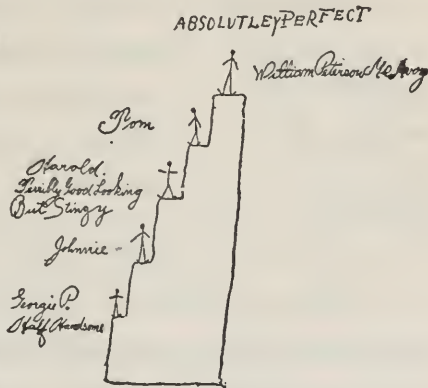 ABSOLUTLEY PERFECT
William Peterson McAvoy
Tom
Harold.
Terribly Good Looking
But Stingy
Johnnie -
Georgie P.
Half Handsome